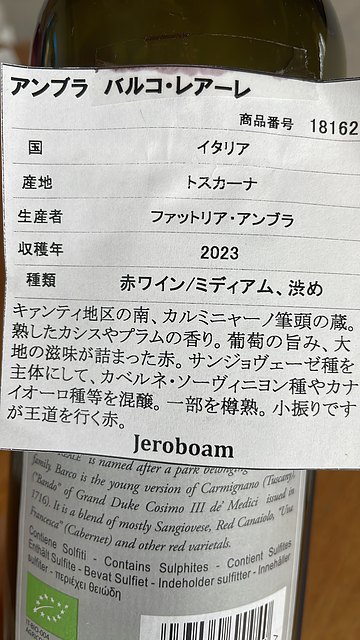 アンブラ バルコ・レアーレ
商品番号 18162
国 イタリア
産地 トスカーナ
生産者 ファットリア・アンブラ
収穫年 2023
種類 赤ワイン/ミディアム、渋め
キャンティ地区の南、カルミニャーノ筆頭の蔵。
熟したカシスやプラムの香り。葡萄の旨み、大
地の滋味が詰まった赤。サンジョヴェーゼ種を
主体にして、カベルネ・ソーヴィニヨン種やカナ
イオーロ種等を混醸。一部を樽熟。小振りです
が王道を行く赤。
Jeroboam
is named after a park belonging
family. Barco is the young version of Carmignano (Tuscany),
("Bando" of Grand Duke Cosimo III de' Medici issued in
1716). It is a blend of mostly Sangiovese, Red Canaiolo, "Uva
Francesca" (Cabernet) and other red varietals.
Contiene Solfiti - Contains Sulphites - Contient Sulfites
Enthält Sulfite - Bevat Sulfiet - Indeholder sulfitter - Innehåller
sulfiter - περιέχει θειώδη